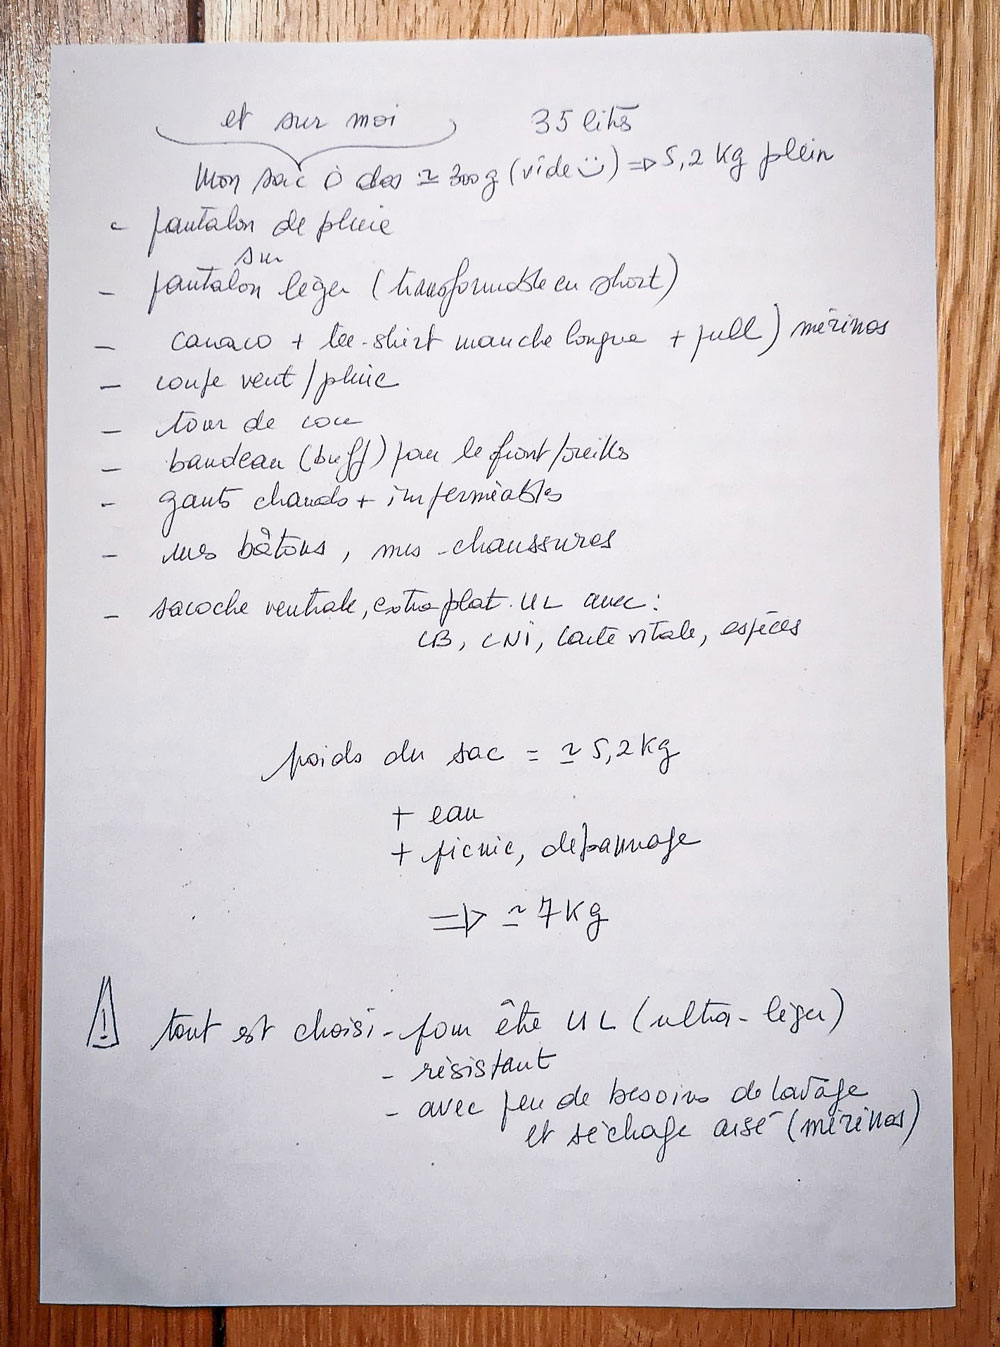 et sur moi 35 litrs
Mon sac à dos ≃ 300g (vide ☺) ⇒ 5,2 Kg plein
- pantalon de pluie
sur
- pantalon léger (transformable en short)
- caraco + tee-shirt manche longue + pull) mérinos
- coupe vent/pluie
- tour de cou
- bandeau (buff) pour le front/oreilles
- gants chauds + imperméables
- mes bâtons, mes chaussures
- sacoche ventrale, extra plat. UL avec :
CB, CNI, carte vitale, espèces
poids du sac = ≃ 5,2 kg
+ eau
+ picnic, dépannage
⇒ ≃ 7 kg
! tout est choisi - pour être UL (ultra-léger)
- résistant
- avec peu de besoins de lavage
et séchage aisé (mérinos)